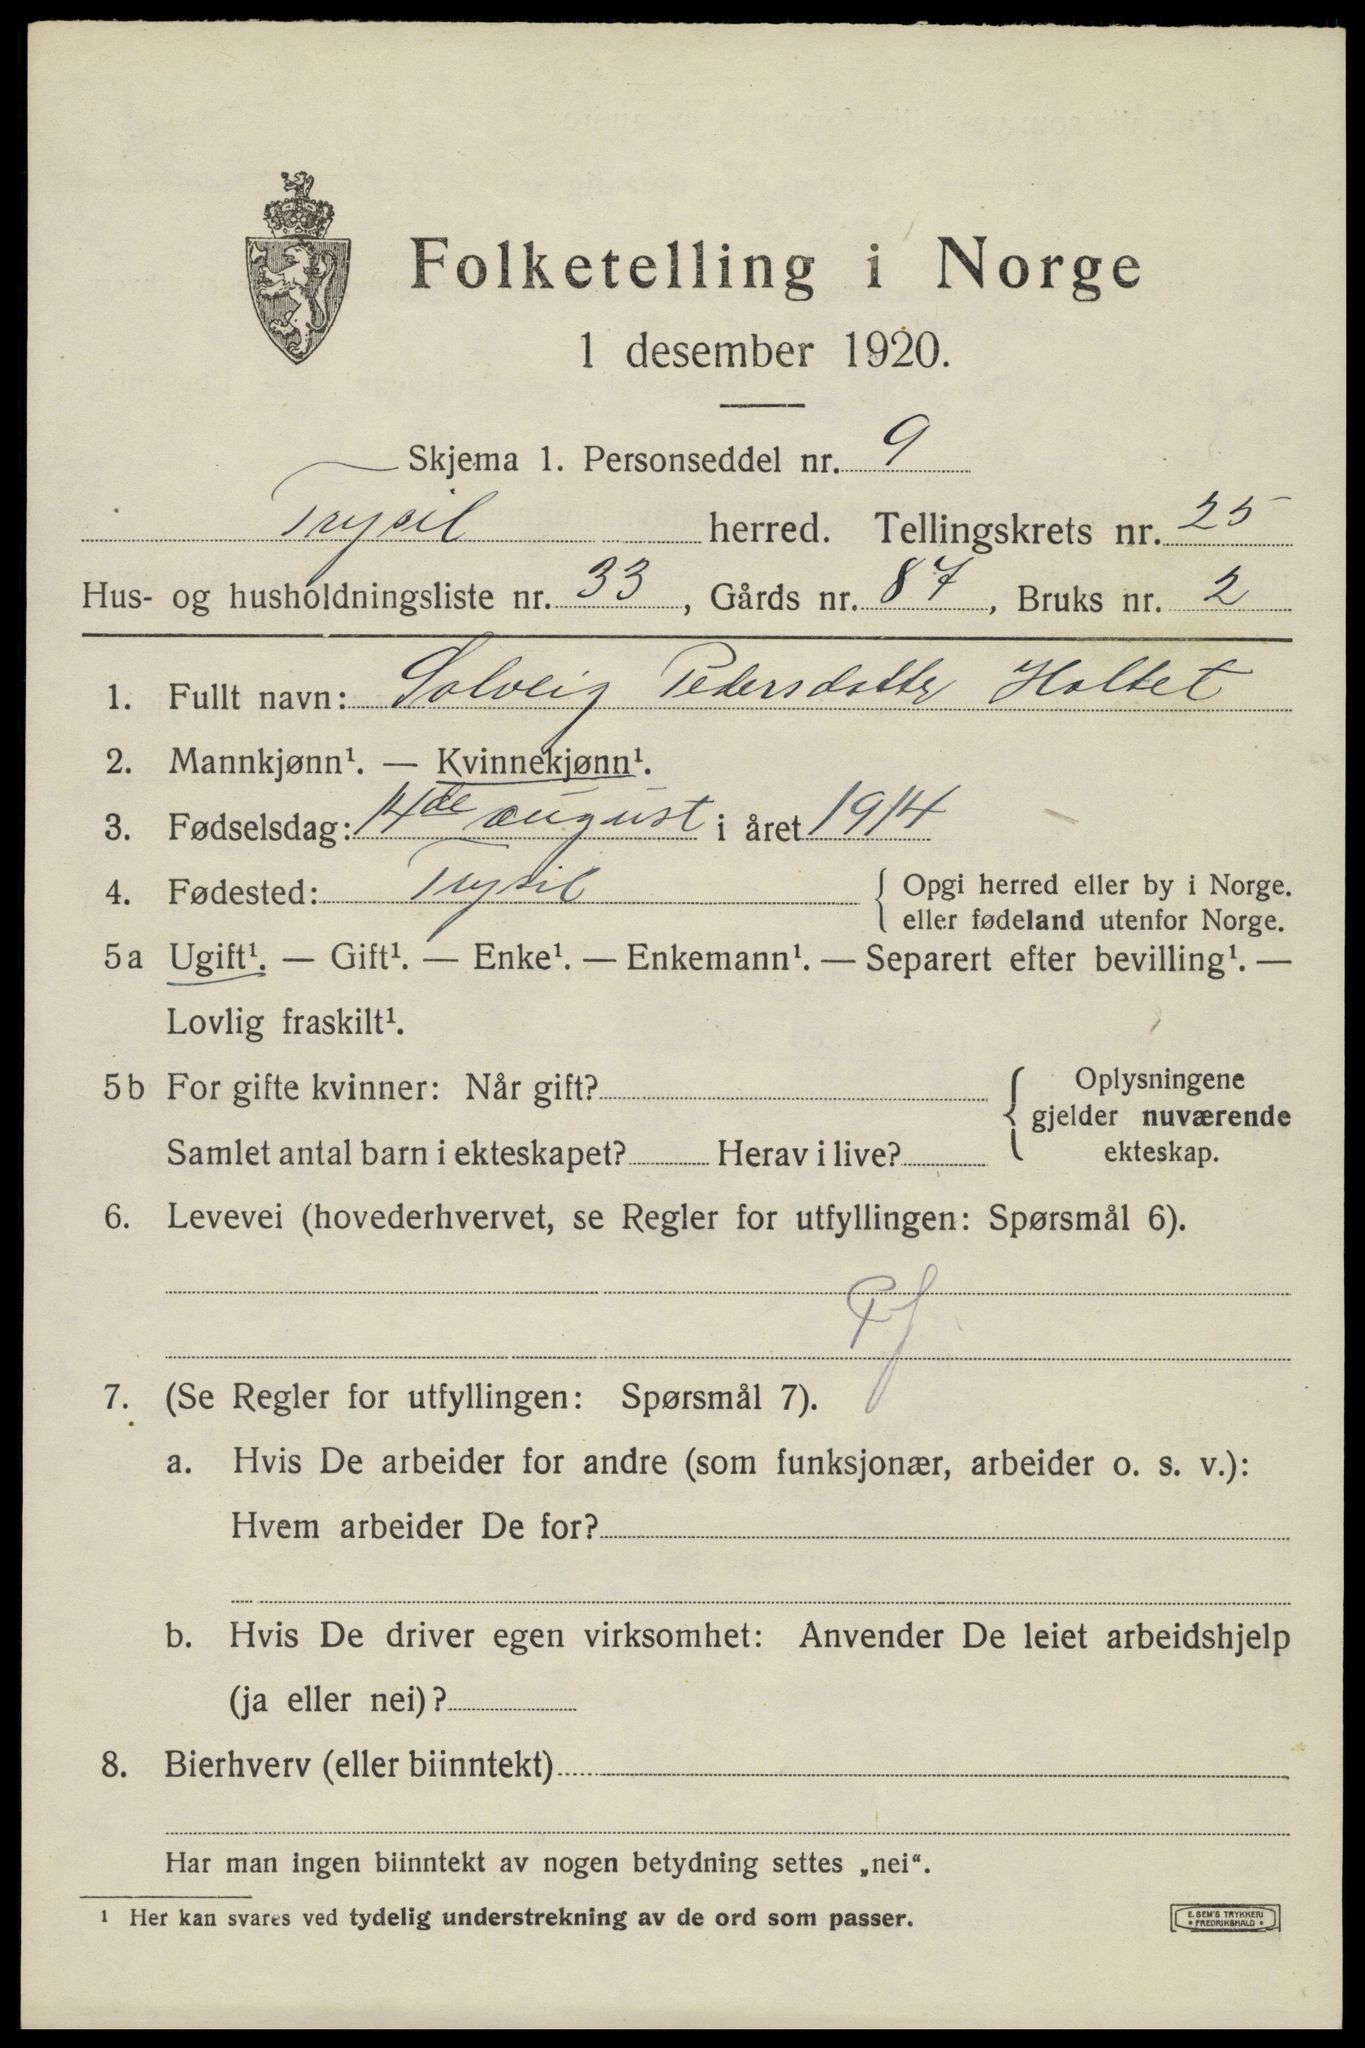 Folketelling i Norge
1 desember 1920.
Skjema 1. Personseddel nr. 9
Trysil herred. Tellingskrets nr. 25
Hus- og husholdningsliste nr. 33, Gårds nr. 87, Bruks nr. 2
1. Fullt navn: Solveig Pedersdatter Holtet
2. Mannkjønn¹. — Kvinnekjønn¹.
3. Fødselsdag: 14de august i året 1914
4. Fødested: Trysil { Opgi herred eller by i Norge.
eller fødeland utenfor Norge.
5a Ugift¹. — Gift¹. — Enke¹. — Enkemann¹. — Separert efter bevilling¹. —
Lovlig fraskilt¹.
5b For gifte kvinner: Når gift? { Oplysningene
gjelder nuværende
Samlet antal barn i ekteskapet? Herav i live? ekteskap.
6. Levevei (hovederhvervet, se Regler for utfyllingen: Spørsmål 6).
7. (Se Regler for utfyllingen: Spørsmål 7).
a. Hvis De arbeider for andre (som funksjonær, arbeider o. s. v.):
Hvem arbeider De for?
b. Hvis De driver egen virksomhet: Anvender De leiet arbeidshjelp
(ja eller nei)?
8. Bierhverv (eller biinntekt)
Har man ingen biinntekt av nogen betydning settes „nei“.
¹ Her kan svares ved tydelig understrekning av de ord som passer.
E. SEM'S TRYKKERI
• FREDRIKSHALD •